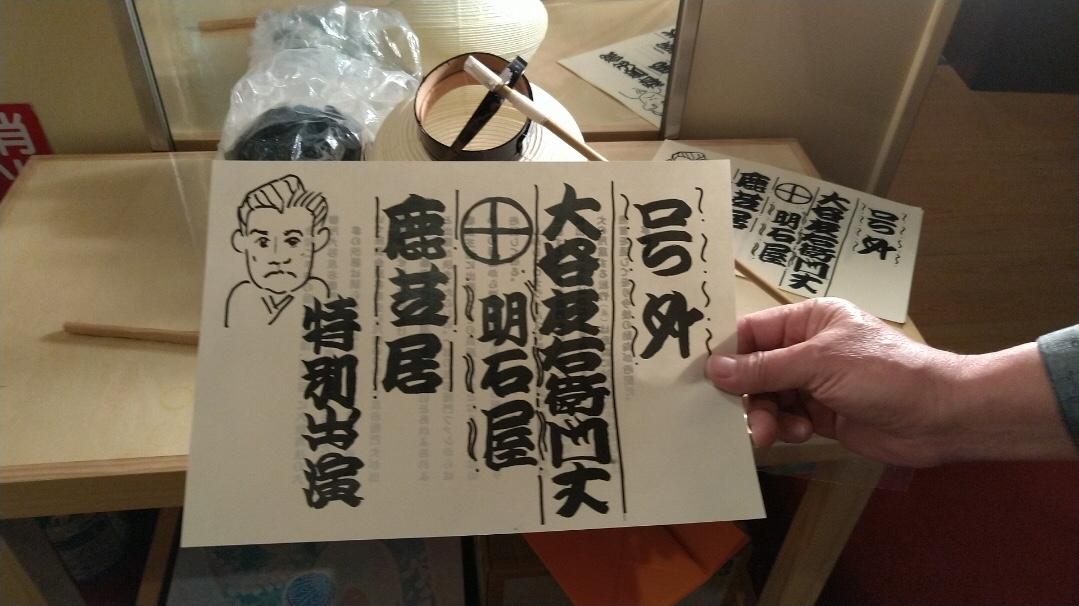 号外
大谷友右衛門丈
明石屋
鹿芝居
特別出演
号外
大谷友右衛門丈
明石屋
鹿芝居